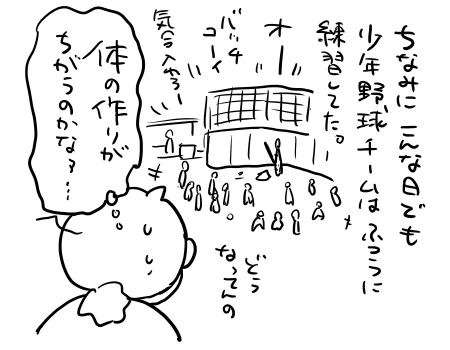 ちなみにこんな日でも
少年野球チームはふつうに
練習してた。
オー
バッチ
コーイ
気合入れろー
どう
なってんの
体の作りが
ちがうのかな?…